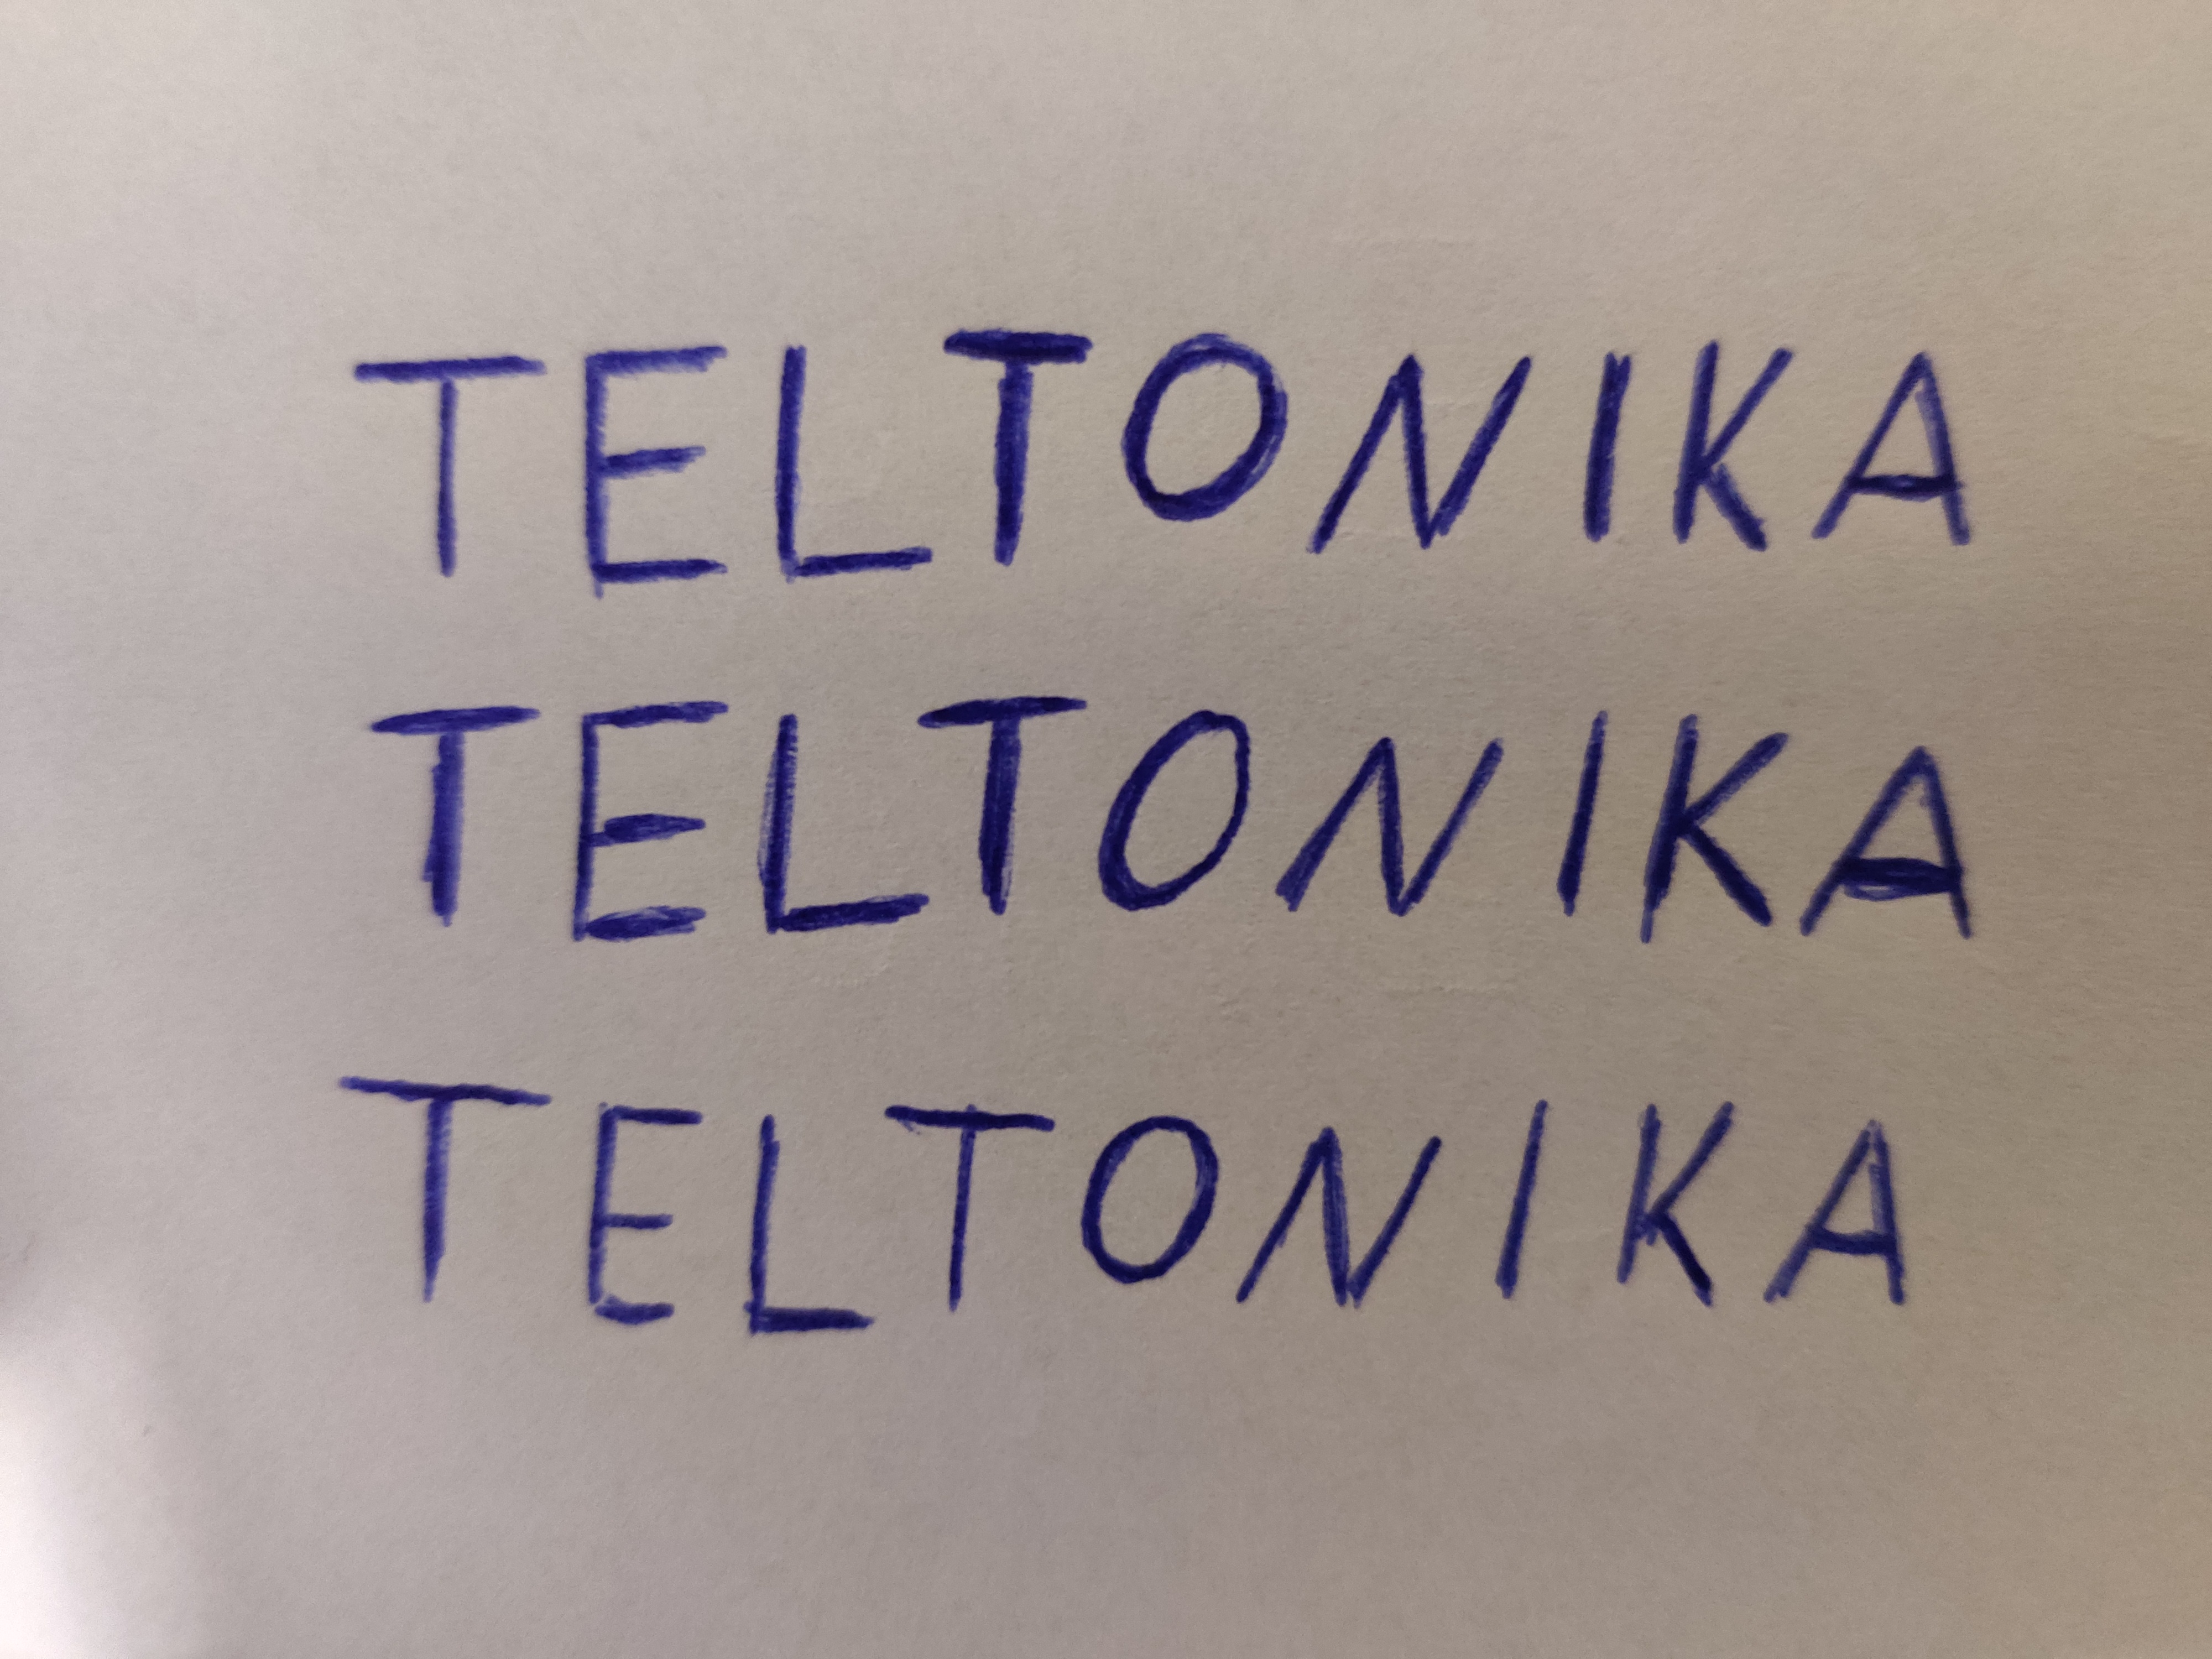 TELTONIKA
TELTONIKA
TELTONIKA